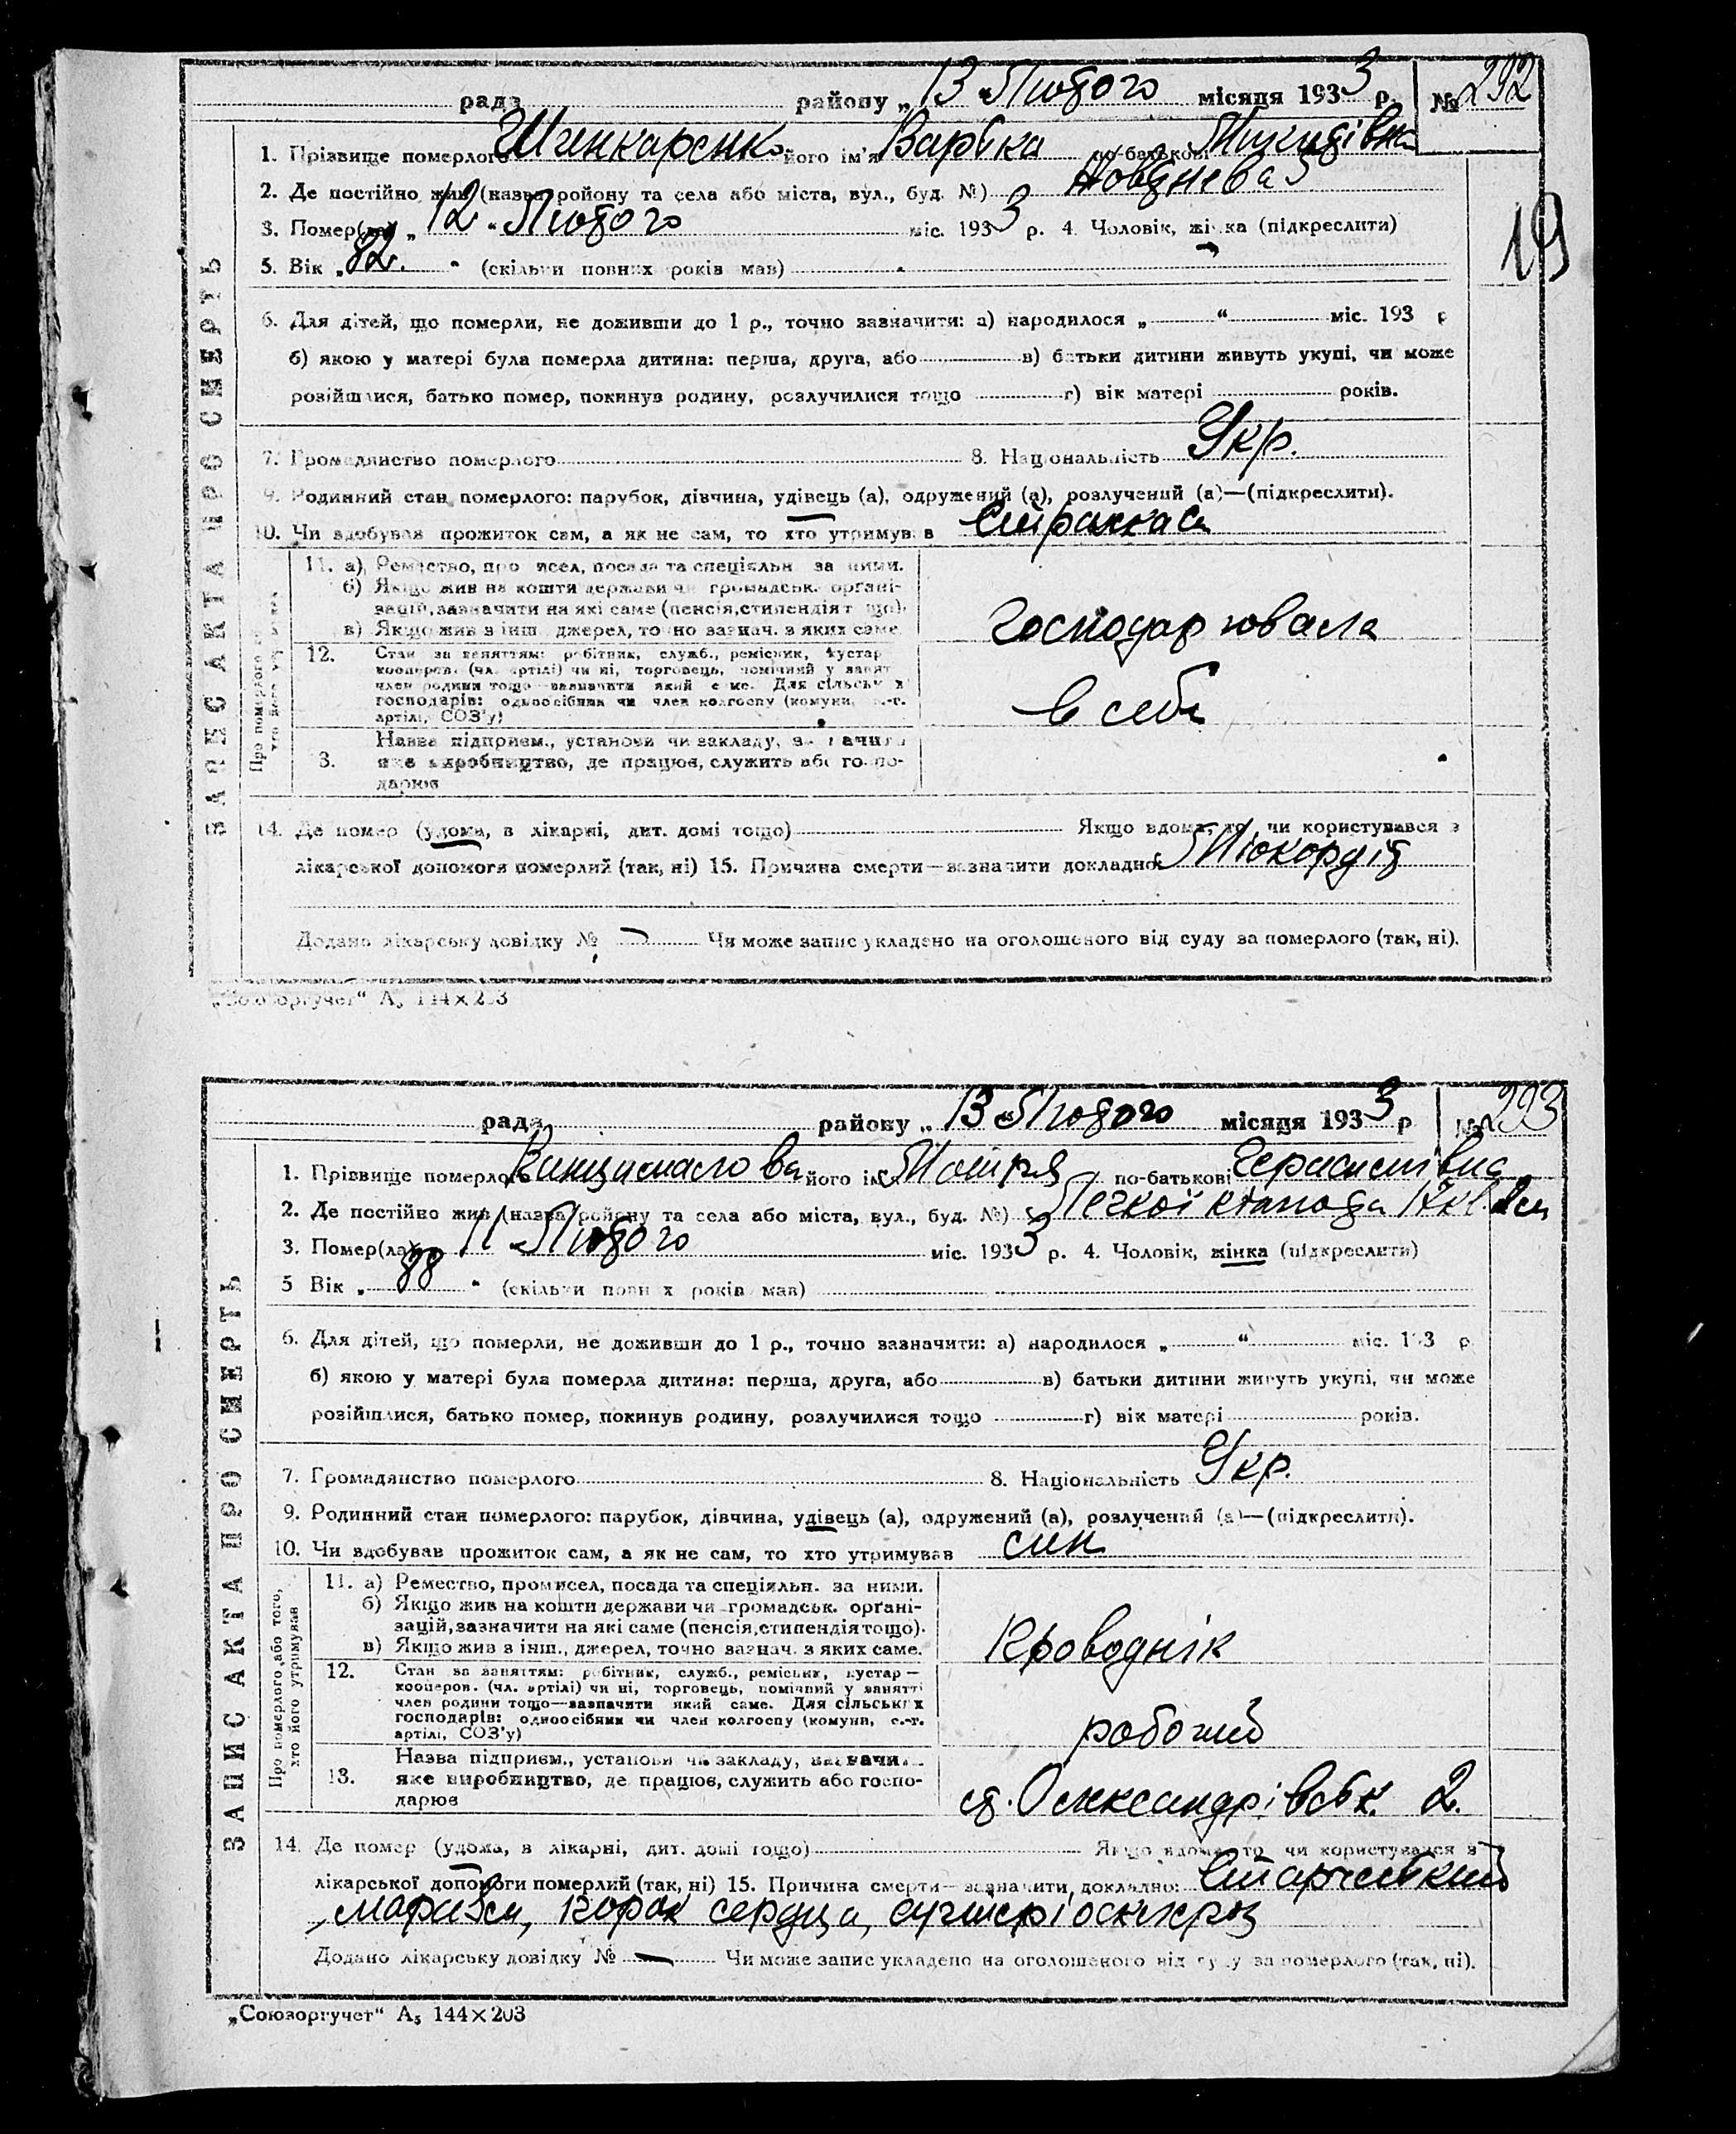 рада району „ 13 “ Лютого місяця 1933 р. № 292
1. Прізвище померлого Шинкаренко його ім'я Варвка по-батькові
2. Де постійно жив (назва району та села або міста, вул., буд. №)
19
3. Помер(ла) „ 12 “ Лютого міс. 1933 р. 4. Чоловік, жінка (підкреслити)
5. Вік „ 82. “ (скільки повних років мав)
6. Для дітей, що померли, не доживши до 1 р., точно зазначити: а) народилося „ “ міс. 193 р
б) якою у матері була померла дитина: перша, друга, або в) батьки дитини живуть укупі, чи може
розійшлися, батько помер, покинув родину, розлучилися тощо г) вік матері років.
7. Громадянство померлого 8. Національність Укр.
9. Родинний стан померлого: парубок, дівчина, удівець (а), одружений (а), розлучений (а)—(підкреслити).
10. Чи здобував прожиток сам, а як не сам, то хто утримував
ЗАПИС АКТА ПРО СМЕРТЬ
11. а) Ремество, промисел, посада та спеціяльн. за ними.
б) Якщо жив на кошти держави чи громадськ. органі-
зацій, зазначити на які саме (пенсія, стипендія тощо).
в) Якщо жив з інш. джерел, точно зазнач. з яких саме
господарювала
12. Стан за заняттям: робітник, служб., ремісник, кустар
кооперов. (чл. артілі) чи ні, торговець, помічний у занятті
член родини тощо—зазначити який саме. Для сільських
господарів: одноосібник чи член колгоспу (комуни, с.-г.
артілі, СОЗ'у)
в себе
Назва підприєм., установи чи закладу, зазначити
13. яке виробництво, де працює, служить або госпо-
дарює
14. Де помер (удома, в лікарні, дит. домі тощо) Якщо вдома, то, чи користувався з
лікарської допомоги померлий (так, ні) 15. Причина смерти—зазначити докладно: Міокардія
Додано лікарську довідку № Чи може запис укладено на оголошеного від суду за померлого (так, ні).
„Союзоргучет“ А5 144×203
рада району „ 13 “ Лютого місяця 1933 р № 293
1. Прізвище померлого його ім'я Мотря по-батькові Герасимівна
2. Де постійно жив (назва району та села або міста, вул., буд. №)
3. Помер(ла) „ 11 “ Лютого міс. 1933 р. 4. Чоловік, жінка (підкреслити)
5 Вік „ 88 “ (скільки повних років мав)
6. Для дітей, що померли, не доживши до 1 р., точно зазначити: а) народилося „ “ міс. 193 р
б) якою у матері була померла дитина: перша, друга, або в) батьки дитини живуть укупі, чи може
розійшлися, батько помер, покинув родину, розлучилися тощо г) вік матері років.
7. Громадянство померлого 8. Національність Укр.
9. Родинний стан померлого: парубок, дівчина, удівець (а), одружений (а), розлучений (а)—(підкреслити).
10. Чи здобував прожиток сам, а як не сам, то хто утримував син
ЗАПИС АКТА ПРО СМЕРТЬ
Про померлого, або того,
хто його утримував
11. а) Ремество, промисел, посада та спеціяльн. за ними.
б) Якщо жив на кошти держави чи громадськ. органі-
зацій, зазначити на які саме (пенсія, стипендія тощо).
в) Якщо жив з інш., джерел, точно зазнач. з яких саме.
проводнік
12. Стан за заняттям: робітник, служб., ремісник, кустар—
кооперов. (чл. артілі) чи ні, торговець, помічний у занятті
член родини тощо—зазначити який саме. Для сільських
господарів: одноосібник чи член колгоспу (комуни, с.-г.
артілі, СОЗ'у)
робочий
Назва підприєм., установи чи закладу, зазначити
13. яке виробництво, де працює, служить або госпо-
дарює
ст. Олександрівськ 2.
14. Де помер (удома, в лікарні, дит. домі тощо) Якщо вдома, то, чи користувався з
лікарської допомоги померлий (так, ні) 15. Причина смерти—зазначити, докладно: Старчевький
маразм, порок сердца, артеріосклероз
Додано лікарську довідку № Чи може запис укладено на оголошеного від суду за померлого (так, ні).
„Союзоргучет“ А5 144×203